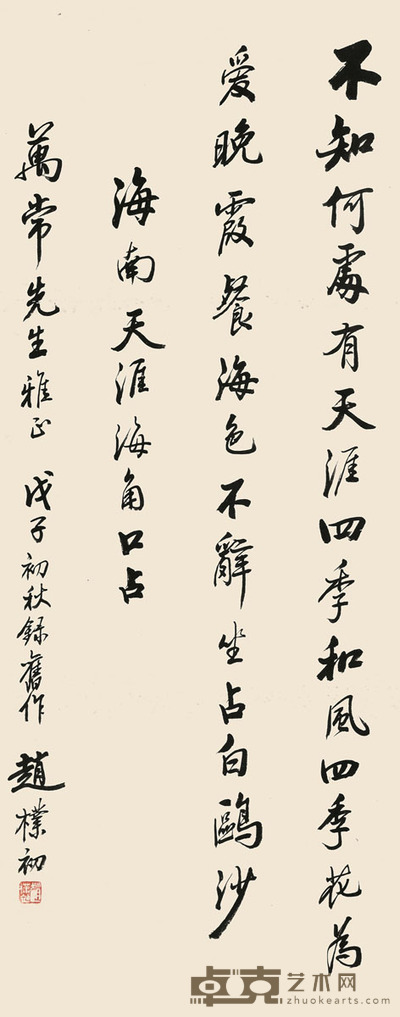 不知何處有天涯四季和風四季花為
愛晚霞餐海色不辭坐占白鷗沙
海南天涯海角口占
萬常先生雅正 戊子初秋録舊作 趙樸初
卓克艺术网
zhuokearts.com